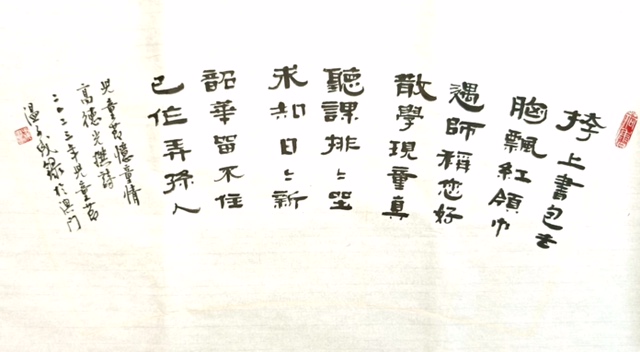 挎上書包去
胸飄紅領巾
遇師稱您好
散學現童真
聽課排排坐
求知日日新
韶華留不住
已作弄孫人
兒童節憶童情
高德光撰詩
二〇二三年兒童節
錄於澳門